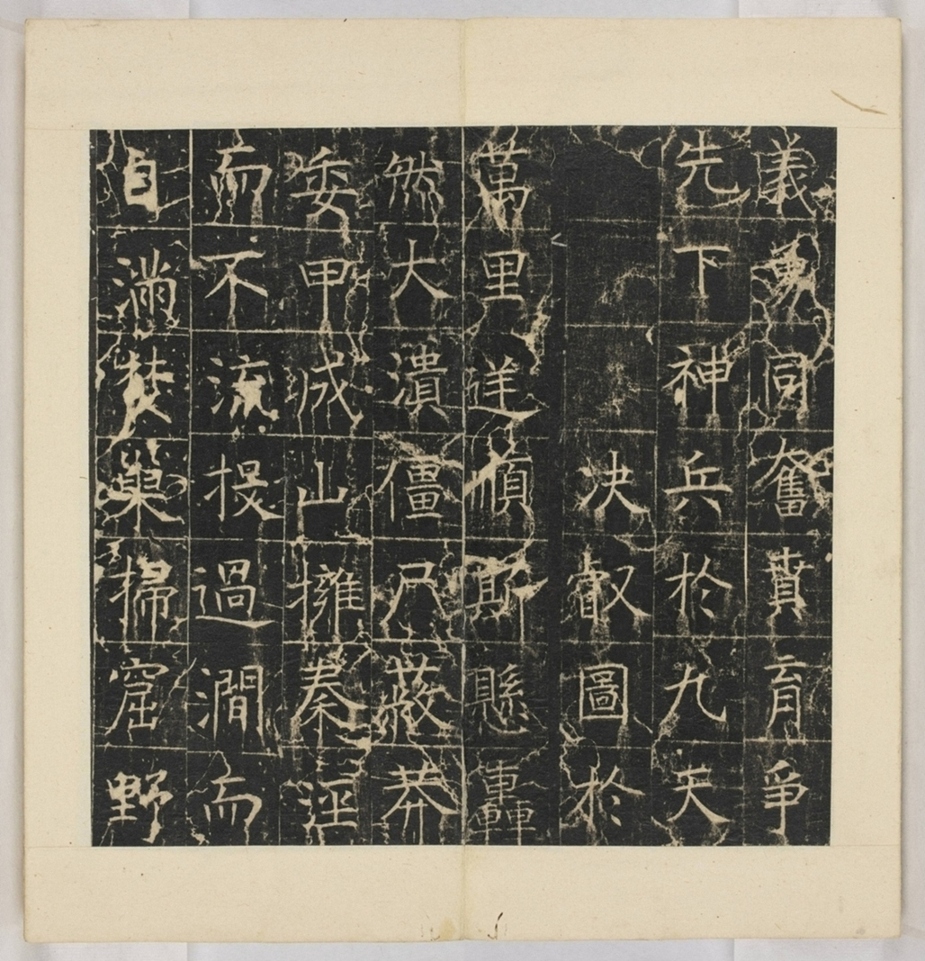 義勇同奮賁育爭
先下神兵於九天
决叡圖於
萬里逆順斯懸轟
然大潰僵尸蔽莽
委甲城山擁秦涇
而不流投過澗而
自滿焚巢掃窟野